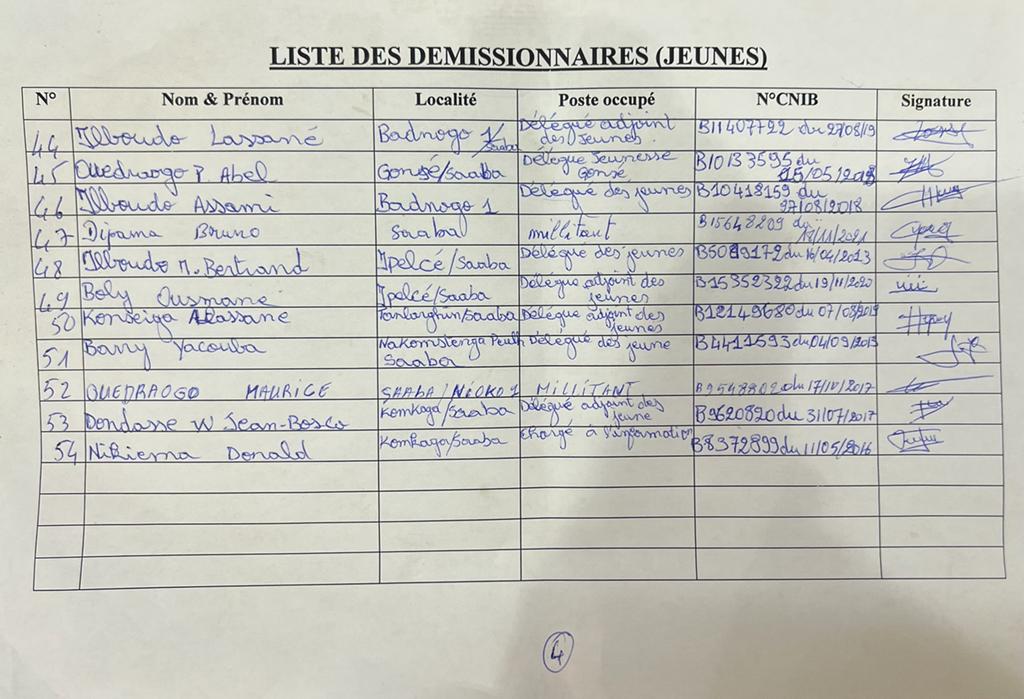 LISTE DES DEMISSIONNAIRES (JEUNES)
N° Nom & Prénom Localité Poste occupé N°CNIB Signature
44 Ilboudo Lassané Badnogo 1/Saaba Délégué adjoint des Jeunes B11407722 du 27/08/19
45 Ouedraogo P. Abel Gonsé/Saaba Délégué Jeunesse Gonsé B10133595 du 15/05/2018
46 Ilboudo Assami Badnogo 1 Délégué des jeunes B10418159 du 27/08/2018
47 Dipama Bruno Saaba millitant B15648209 du
48 Ilboudo M. Bertrand Ipelcé/Saaba Délégué des jeunes du 16/04/2013
49 Boly Ousmane Ipelcé/Saaba Délégué adjoint des jeunes B15352322 du 19/11/2020
50 Konseiga Alassane Délégué adjoint des jeunes B12149680 du 07/08/2019
51 Barry Yacouba Nakomstenga Peulh Saaba Délégué des jeune
52 OUEDRAOGO MAURICE SAABA/NIOKO 1 MILLITANT B9548802
53 Dondasse W Jean-Bosco Komkaga/Saaba Délégué adjoint des jeune B9620820 du 31/07/2017
54 Nikiema Donald Komkaga/Saaba chargé à l'information B8372899 du 11/05/2016
4